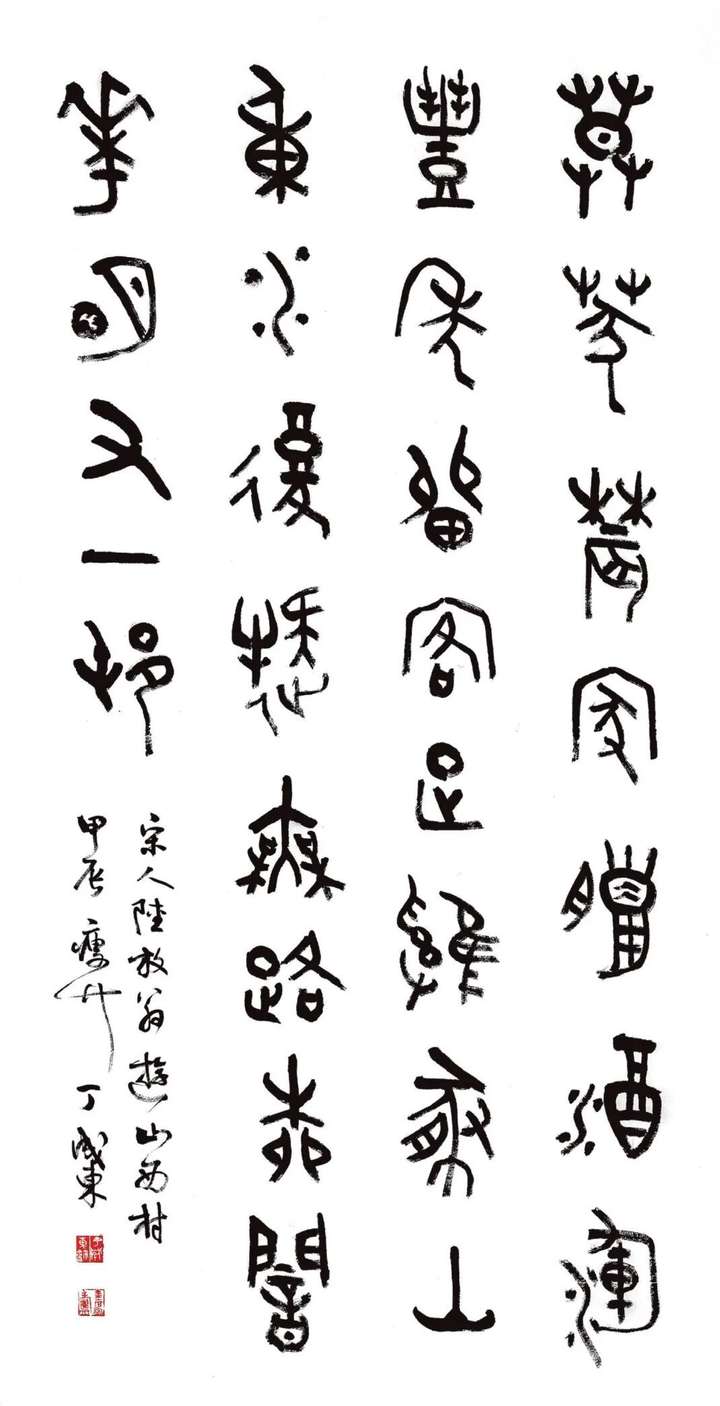 莫笑農家臘酒渾
豐年留客足雞豚山
重水復疑無路柳闇
華明又一邨
宋人陸放翁遊山西村
甲辰瘦竹丁成東